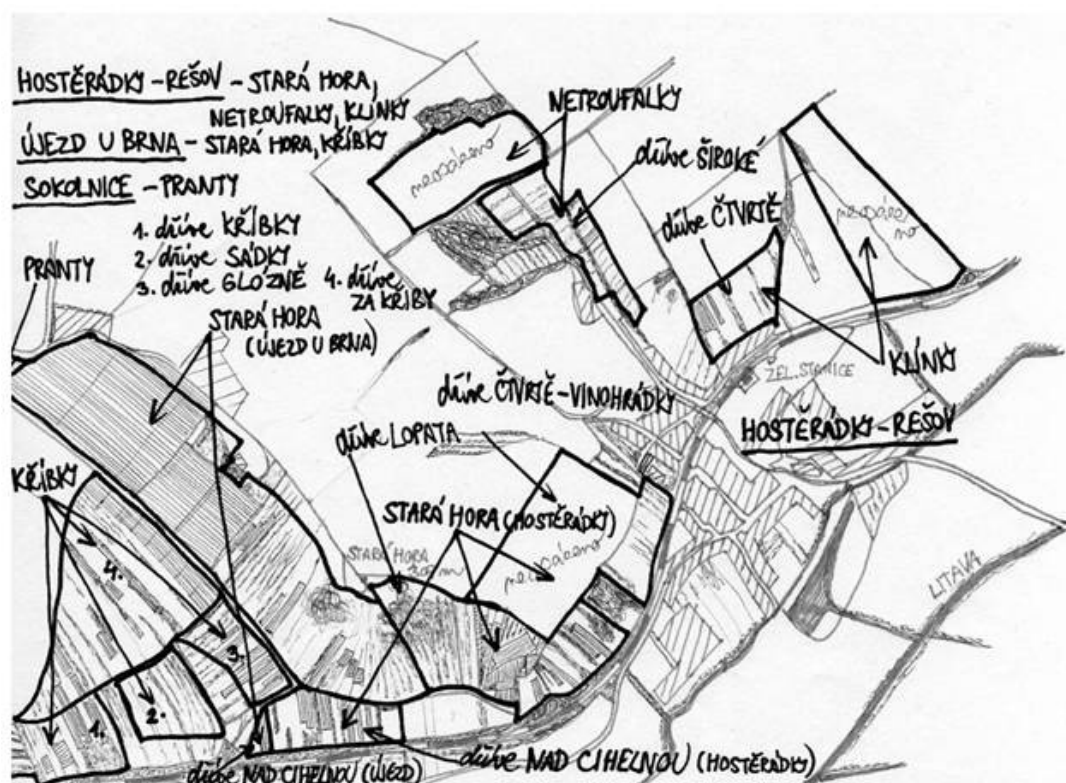 HOSTĚRÁDKY-REŠOV - STARÁ HORA,
NETROUFALKY, KLÍNKY
ÚJEZD U BRNA - STARÁ HORA, KŘÍBKY
SOKOLNICE - PRANTY
1. dříve KŘÍBKY
2. dříve SÁDKY
3. dříve GLÓZNĚ
4. dříve
ZA KŘÍBY
PRANTY
STARÁ HORA
(ÚJEZD U BRNA)
NETROUFALKY
neosázeno
dříve ŠIROKÉ
dříve ČTVRTĚ
neosáze
no
KLÍNKY
ŽEL. STANICE
HOSTĚŘÁDKY-REŠOV
dříve ČTVRTĚ-VINOHRÁDKY
dříve LOPATA
STARÁ HORA (HOSTĚŘÁDKY)
neosázeno
STARÁ HORA
LITAVA
KŘÍBKY
4.
3.
2.
1.
dříve NAD CIHELNOU (ÚJEZD)
dříve NAD CIHELNOU (HOSTĚŘÁDKY)